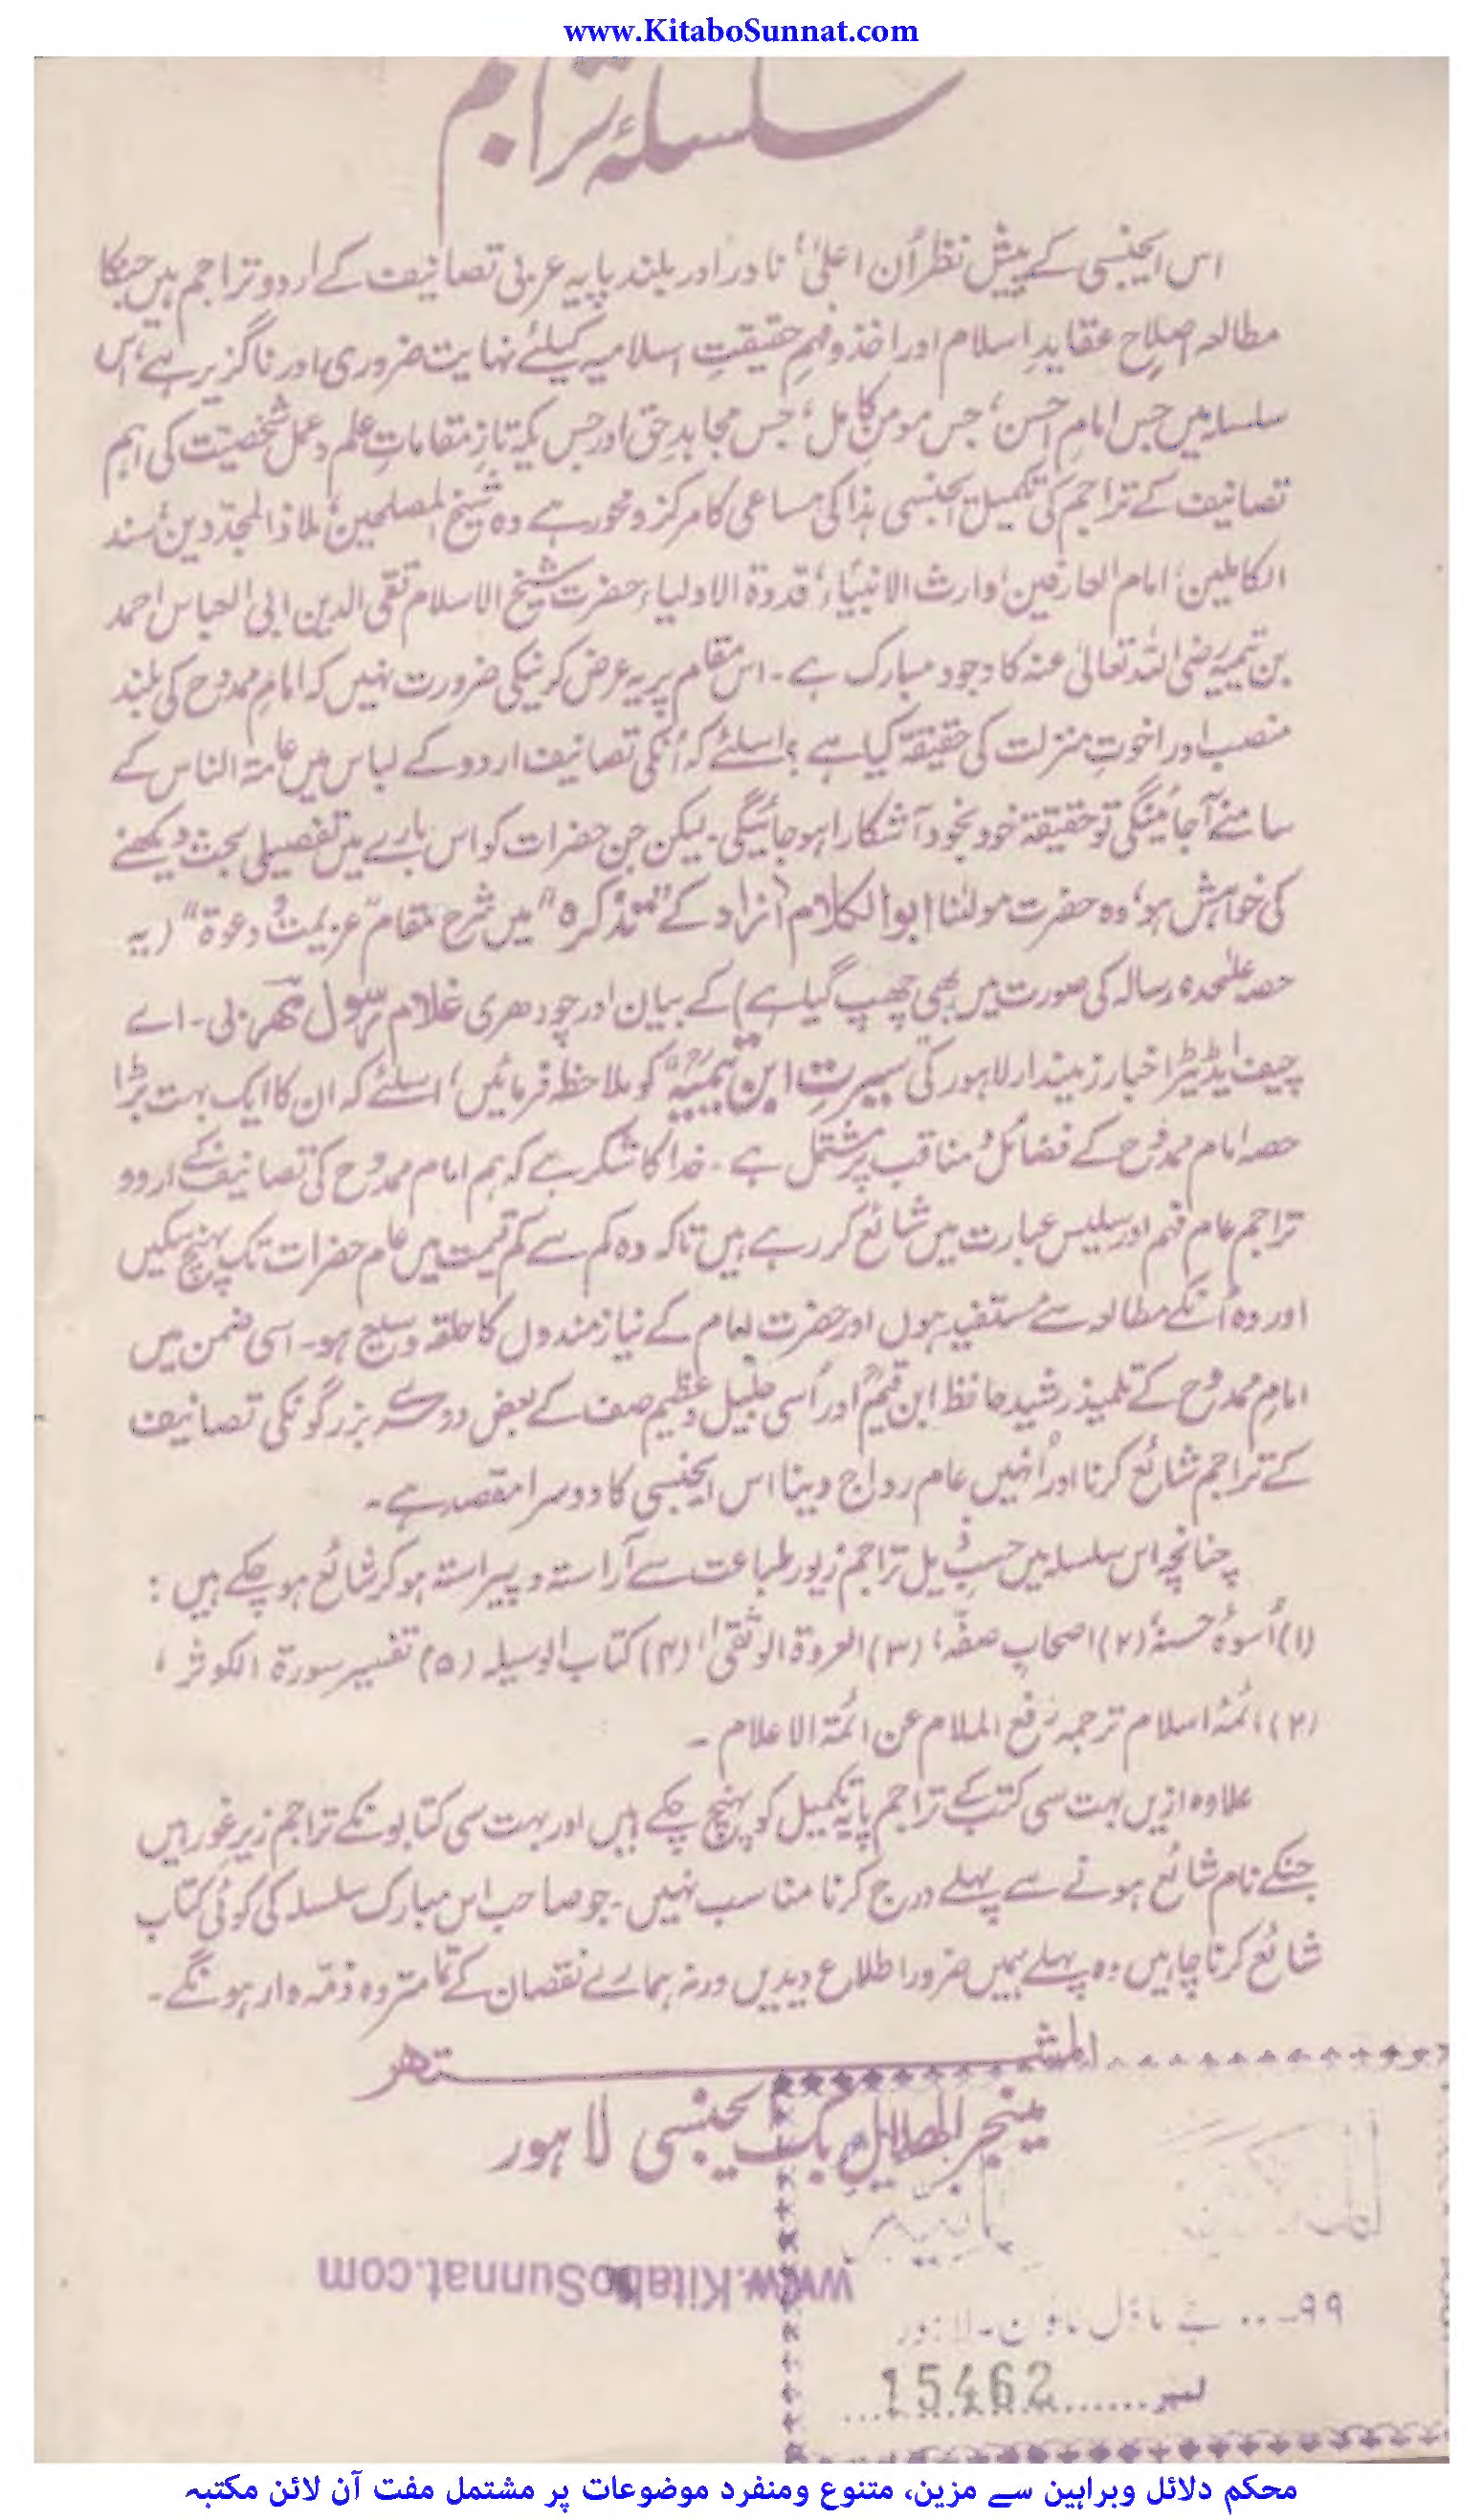 www.KitaboSunnat.com
سلسلۂ تراجم
اس ایجنسی کے پیش نظر اُن اعلیٰ، نادر اور بلند پایہ عربی تصانیف کے اردو تراجم ہیں جنکا
مطالعہ اصلاحِ عقایدِ اسلام اور اخذ و فہمِ حقیقتِ اسلامیہ کیلئے نہایت ضروری اور ناگزیر ہے، اس
سلسلہ میں جس امامِ احسن، جس مومنِ کامل، جس مجاہدِ حق اور جس یکہ تازِ مقاماتِ علم و عمل شخصیت کی اہم
تصانیف کے تراجم کی تکمیل ایجنسی ہذا کی مساعی کا مرکز و محور ہے وہ شیخ المصلحین، ملاذ المجدّدین، سند
الکاملین، امام العارفین، وارث الانبیاء، قدوۃ الاولیاء، حضرت شیخ الاسلام تقی الدین ابی العباس احمد
بن تیمیہ رضی اللہ تعالیٰ عنہ کا وجود مبارک ہے۔ اس مقام پر یہ عرض کرنیکی ضرورت نہیں کہ امامِ ممدوح کی بلند
منصب اور اخوتِ منزلت کی حقیقۃ کیا ہے؟ اسلئے کہ اُنکی تصانیف اردو کے لباس میں عامۃ الناس کے
سامنے آجائینگی تو حقیقۃ خود بخود آشکارا ہو جائیگی۔ لیکن جن حضرات کو اس بارے میں تفصیلی بحث دیکھنے
کی خواہش ہو، وہ حضرت مولٰنا ابوالکلام آزاد کے "تذکرہ" میں شرح مقام "عزیمت و دعوۃ" (یہ
حصہ علیٰحدہ رسالہ کی صورت میں بھی چھپ گیا ہے) کے بیان اور چودھری غلام رسول مہر بی۔ اے
چیف ایڈیٹر اخبار زمیندار لاہور کی سیرتِ ابن تیمیہؒ کو ملاحظہ فرمائیں، اسلئے کہ ان کا ایک بہت بڑا
حصہ امام ممدوح کے فضائل و مناقب پر مشتمل ہے۔ خدا کا شکر ہے کہ ہم امام ممدوح کی تصانیف کے اردو
تراجم عام فہم اور سلیس عبارت میں شائع کر رہے ہیں تاکہ وہ کم سے کم قیمت میں عام حضرات تک پہنچ سکیں
اور وہ اُنکے مطالعہ سے مستفید ہوں اور حضرت امام کے نیازمندوں کا حلقہ وسیع ہو۔ اسی ضمن میں
امامِ ممدوح کے تلمیذ رشید حافظ ابن قیمؒ اور اُسی جلیل و عظیم صف کے بعض دوسرے بزرگونکی تصانیف
کے تراجم شائع کرنا اور اُنہیں عام رواج دینا اس ایجنسی کا دوسرا مقصد ہے۔
چنانچہ اس سلسلہ میں حسبِ ذیل تراجم زیور طباعت سے آراستہ و پیراستہ ہو کر شائع ہو چکے ہیں:
(۱) اُسوۂ حسنہ، (۲) اصحابِ صفّہ، (۳) العروۃ الوثقیٰ، (۴) کتاب الوسیلہ (۵) تفسیر سورۃ الکوثر،
(۶) ائمۂ اسلام ترجمہ رفع الملام عن ائمۃ الاعلام۔
علاوہ ازیں بہت سی کتب کے تراجم پایۂ تکمیل کو پہنچ چکے ہیں اور بہت سی کتابونکے تراجم زیر غور ہیں
جنکے نام شائع ہونے سے پہلے درج کرنا مناسب نہیں۔ جو صاحب اس مبارک سلسلہ کی کوئی کتاب
شائع کرنا چاہیں وہ پہلے ہمیں ضرور اطلاع دیدیں ورنہ ہمارے نقصان کے تمامتر وہ ذمّہ وار ہونگے۔
المشتہر
مینجر الہلال بک ایجنسی لاہور
www.KitaboSunnat.com
۹۹۔۔۔ جے ماڈل ٹاؤن۔ لاہور
نمبر 15462
محکم دلائل وبراہین سے مزین، متنوع ومنفرد موضوعات پر مشتمل مفت آن لائن مکتبہ